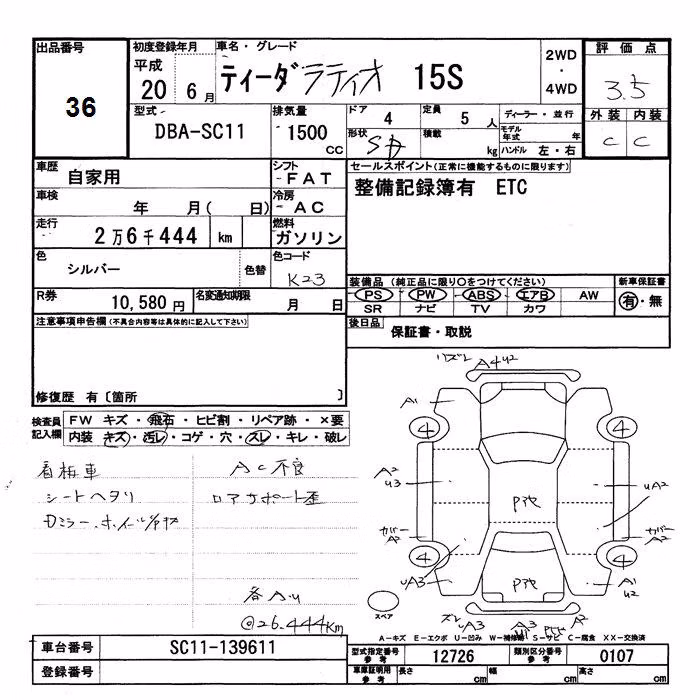 出品番号
36
初度登録年月
平成
20 6月
車名・グレード
ティーダラティオ 15S
2WD
・
4WD
評価点
3.5
外装 内装
C C
型式
DBA-SC11
排気量
1500
CC
ドア 4
形状
定員 5 人
積載 kg
ディーラー・並行
モデル年式 年
ハンドル 左・右
車歴 自家用
シフト
FAT
車検 年 月( 日)
冷房
AC
走行 2万6千444 km
燃料
ガソリン
色 シルバー 色替
色コード
K23
R券 10,580円
名変通知期限 月 日
セールスポイント(正常に機能するものに限ります)
整備記録簿有 ETC
装備品(純正品に限り○をつけてください)
PS PW ABS エアB AW
SR ナビ TV カワ
新車保証書
有・無
後日品 保証書・取説
注意事項申告欄(不具合内容等は具体的に記入して下さい)
修復歴 有〔箇所 〕
検査員記入欄
FW キズ・飛石・ヒビ割・リペア跡・×要
内装 キズ・汚レ・コゲ・穴・スレ・キレ・破レ
看板車
シートヘタリ
AC不良
ロアサポート歪
@26.444Km
A4 U2
A1
4
4
A2
U3
UA2
カバー
A2
カバー
A2
4
4
UA3
A1
U2
スペア
A3
A3
A2
A-キズ E-エクボ U-凹み W-補修跡 S-サビ C-腐食 XX-交換済
車台番号 SC11-139611
登録番号
型式指定番号
参考
12726
類別区分番号
参考
0107
車庫証明用
参考
長さ cm
幅 cm
高さ cm